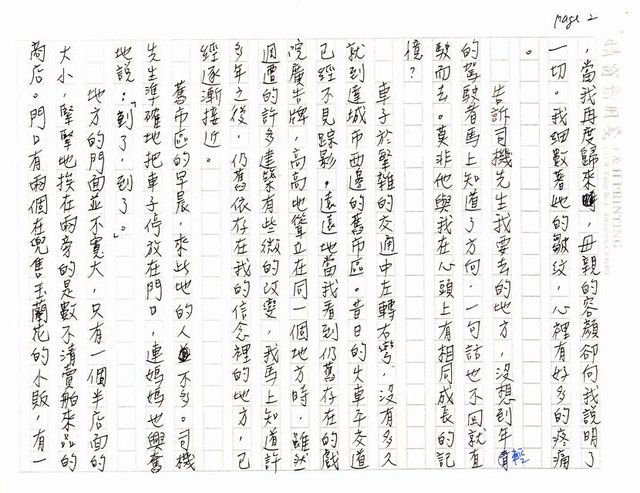 page 2
，當我再度歸來時，母親的容顏卻向我說明了
一切。我細數著她的皺紋，心裡有好多的疼痛
。
告訴司機先生我要去的地方，沒想到年輕
的駕駛者馬上知道了方向，一句話也不回就直
駛而去。莫非他與我在心頭上有相同成長的記
憶？
車子於繁雜的交通中左轉右彎，沒有多久
就到達城市西邊的舊市區。昔日的火車平交道
已經不見踪影。遠遠地當我看到仍舊存在的戲
院廣告牌，高高地聳立在同一個地方時，雖然
週遭的許多建築有些微的改變，我馬上知道許
多年之後，仍舊依存在我的信念裡的地方，已
經逐漸接近。
舊市區的早晨，來此地的人並不多。司機
先生準確地把車子停放在門口，連媽媽也興奮
地說：「到了，到了。」
地方的門面並不寬大，只有一個半店面的
大小，緊緊地挨在兩旁的是數不清賣舶來品的
商店。門口有兩個在兜售玉蘭花的小販，有一